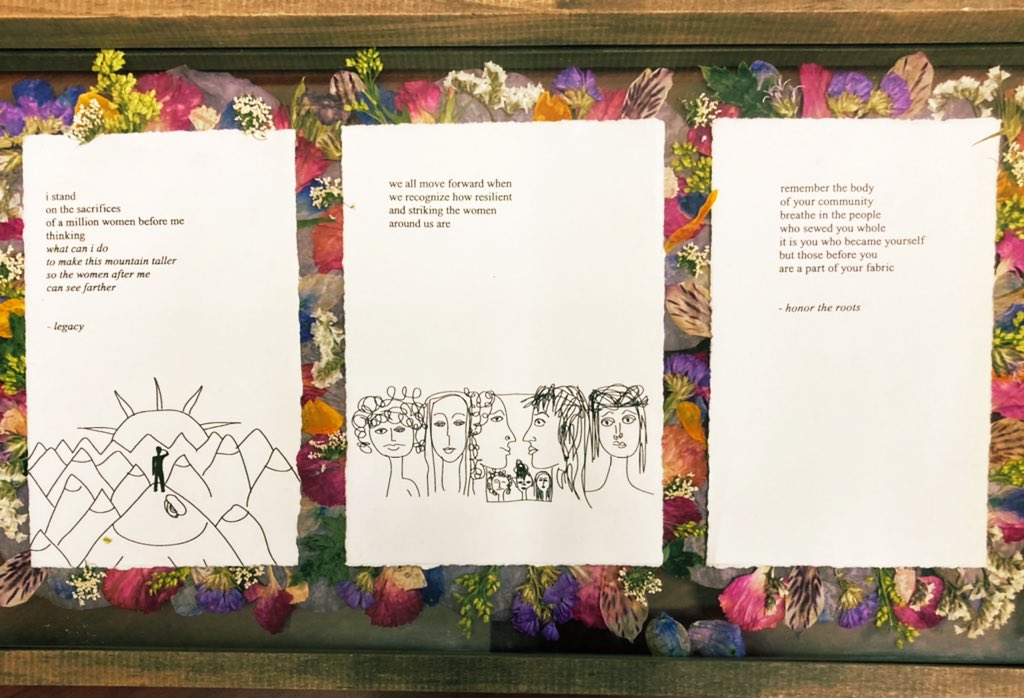 i stand
on the sacrifices
of a million women before me
thinking
what can i do
to make this mountain taller
so the women after me
can see farther
- legacy
we all move forward when
we recognize how resilient
and striking the women
around us are
remember the body
of your community
breathe in the people
who sewed you whole
it is you who became yourself
but those before you
are a part of your fabric
- honor the roots